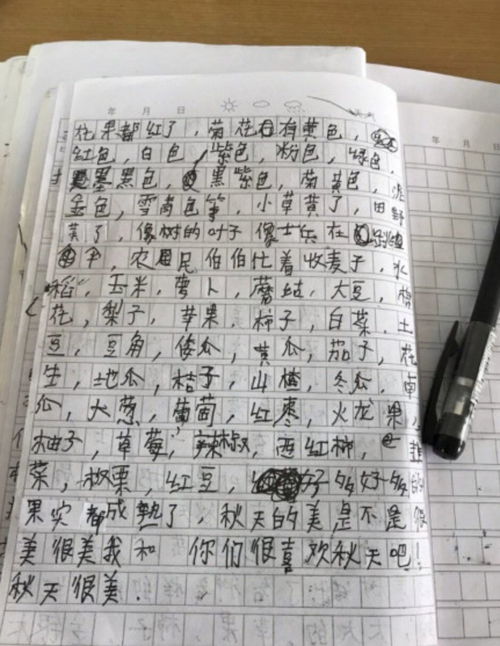 年 月 日
花果都红了，菊花有黄色，
红色，白色，紫色，粉色，绿色，
墨黑色，黑紫色，菊黄色，泥
金色，雪青色等，小草黄了，田野
黄了，像树的叶子像士兵在
农民伯伯忙着收麦子，水
稻，玉米，萝卜，蘑菇，大豆，棉
花，梨子，苹果，柿子，白菜，土
豆，豆角，倭瓜，黄瓜，茄子，花
生，地瓜，桔子，山楂，冬瓜，南
瓜，大葱，葡萄，红枣，火龙果，
柚子，草莓，辣椒，西红柿，韭
菜，板栗，红豆，好多好多的
果实都成熟了，秋天的美是不是很
美很美我和 你们很喜欢秋天吧！
秋天很美．